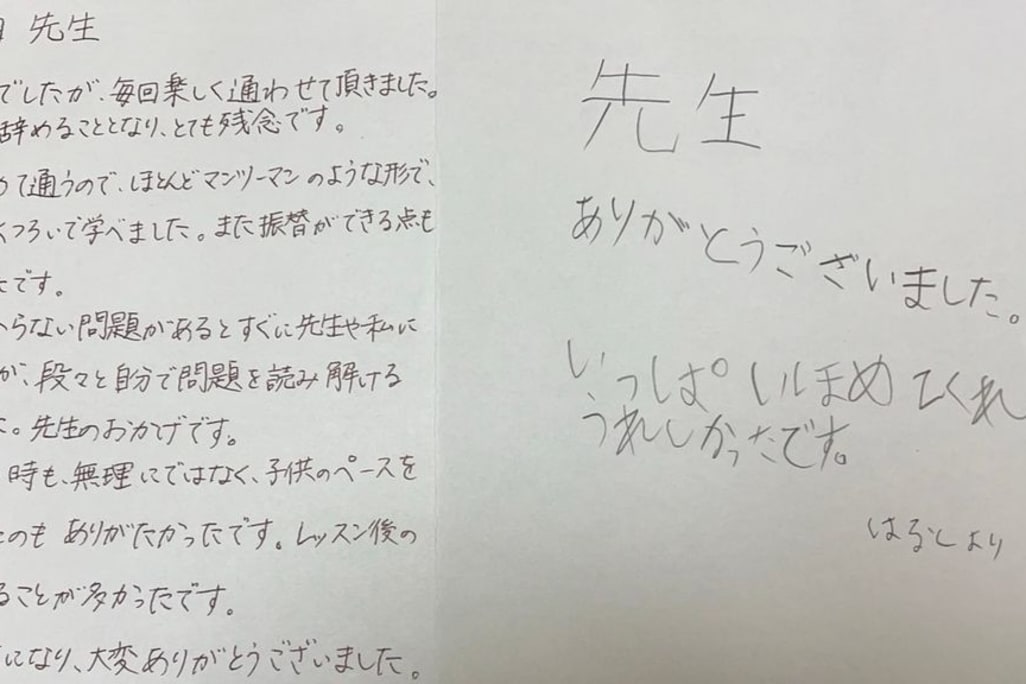 先生
でしたが、毎回楽しく通わせて頂きました。
辞めることとなり、とても残念です。
めて通うので、ほとんどマンツーマンのような形で、
くつろいで学べました。また振替ができる点も
たです。
らない問題があるとすぐに先生や私に
が、段々と自分で問題を読み解ける
た。先生のおかげです。
時も、無理にではなく、子供のペースを
たのもありがたかったです。レッスン後の
ることが多かったです。
になり、大変ありがとうございました。
先生
ありがとうございました。
いっぱいほめてくれ
うれしかったです。
はるとより